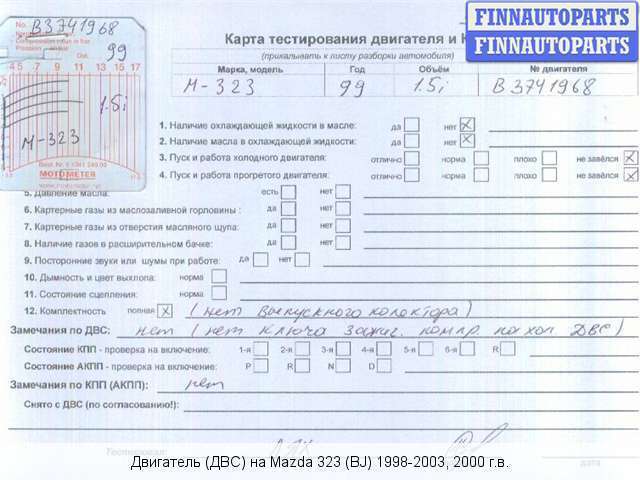 FINNAUTOPARTS
FINNAUTOPARTS
No. B3741968
99
4 5 7 9 11 13 15 17
1.5i
M-323
MOTOMETER
Карта тестирования двигателя и К
(прикалывать к листу разборки автомобиля)
Марка, модель Год Объём № двигателя
М-323 99 1.5i В3741968
1. Наличие охлаждающей жидкости в масле: да нет X
2. Наличие масла в охлаждающей жидкости: да нет X
3. Пуск и работа холодного двигателя: отлично норма плохо не завёлся X
4. Пуск и работа прогретого двигателя: отлично норма плохо не завёлся X
5. Давление масла: есть нет
6. Картерные газы из маслозаливной горловины : да нет
7. Картерные газы из отверстия масляного щупа: да нет
8. Наличие газов в расширительном бачке: да нет
9. Посторонние звуки или шумы при работе: да нет
10. Дымность и цвет выхлопа: норма
11. Состояние сцепления: норма
12. Комплектность полная X (нет выпускного колектора)
Замечания по ДВС: нет (нет ключа зажиг. компр. на хол ДВС)
Состояние КПП - проверка на включение: 1-я 2-я 3-я 4-я 5-я 6-я R
Состояние АКПП - проверка на включение: P R N D
Замечания по КПП (АКПП): нет
Снято с ДВС (по согласованию!):
Двигатель (ДВС) на Mazda 323 (BJ) 1998-2003, 2000 г.в.
дата